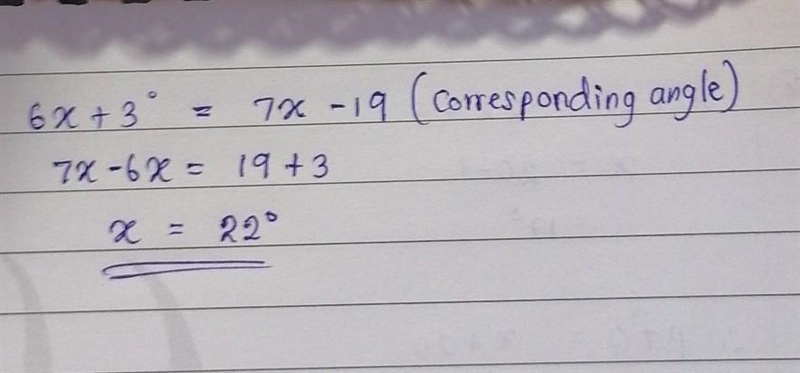 6x + 3° = 7x - 19 (Corresponding angle)
7x - 6x = 19 + 3
x = 22°